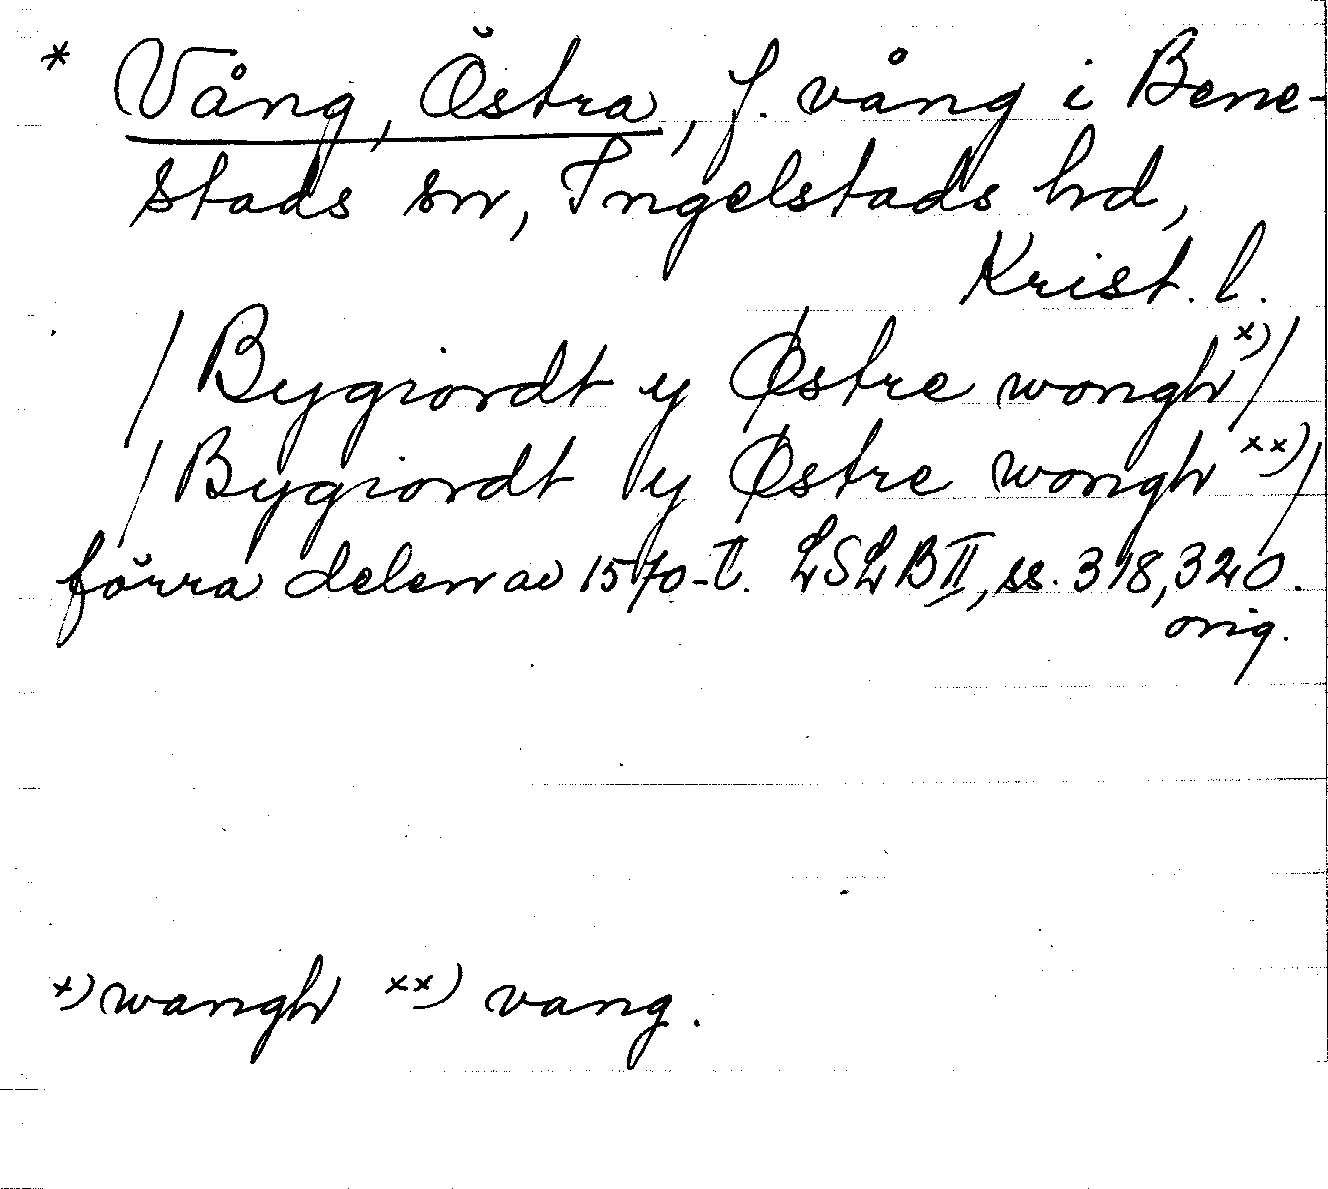 * Vång, Östra, f. vång i Bene-
stads sn, Ingelstads hd,
Krist. l.
/ Bygiordt y Østre wongh x) /
/ Bygiordt y Østre wongh xx) /
förra delen av 1570-t. LSLB II, ss. 318, 320.
orig.
x) wangh xx) vang.